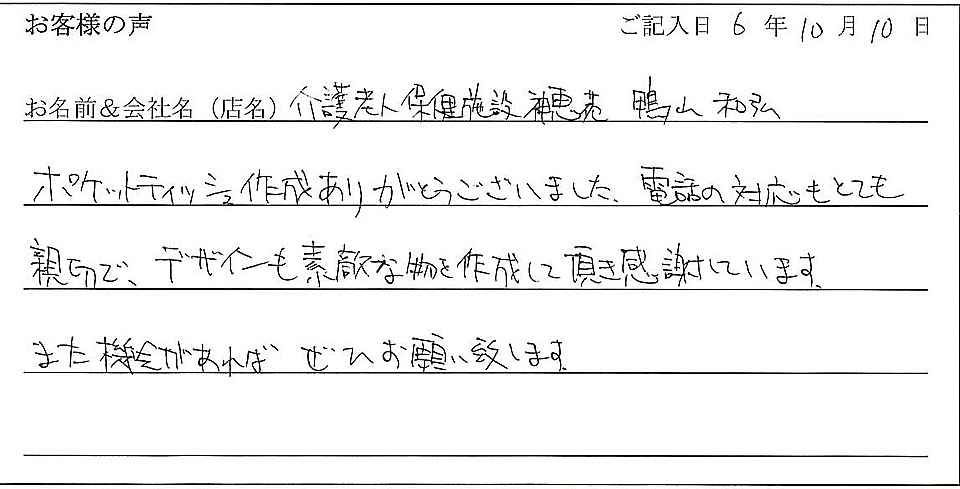 お客様の声
ご記入日 6 年 10 月 10 日
お名前＆会社名（店名）介護老人保健施設 神恵苑 鴨山 和弘
ポケットティッシュ作成ありがとうございました。電話の対応もとても
親切で、デザインも素敵な物を作成して頂き感謝しています。
また機会があれば ぜひお願い致します。